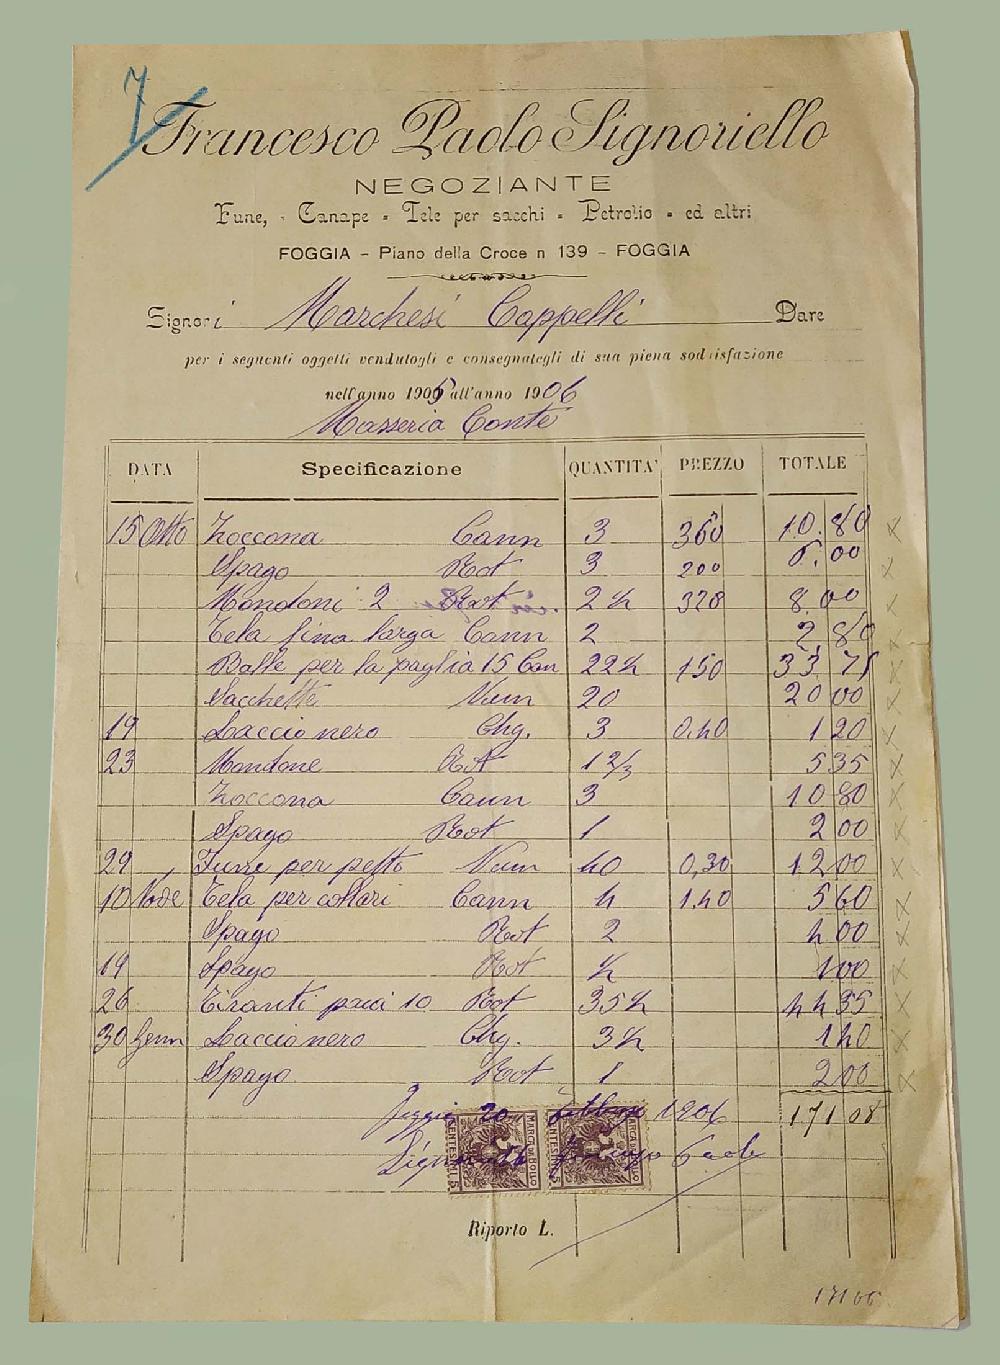 7
Francesco Paolo Signoriello
NEGOZIANTE
Fune, - Canape - Tele per sacchi - Petrolio - ed altri
FOGGIA - Piano della Croce n 139 - FOGGIA
Signori Marchesi Cappelli Dare
per i seguenti oggetti vendutogli e consegnategli di sua piena soddisfazione
nell'anno 1905 all'anno 1906
Masseria Conte
DATA Specificazione QUANTITA' PREZZO TOTALE
15 Otto Zoccona Cann 3 360 10.80
Spago Rot 3 200 6.00
Mondoni 2 Rot 2 ½ 320 8.00
Tela fina larga Cann 2 2 80
Balle per la paglia 15 Can 22½ 150 33 75
Sacchette Num 20 20 00
19 Laccio nero Chg. 3 0,40 1 20
23 Mondone Rot 1 2/3 5 35
Zoccona Cann 3 10 80
Spago Rot 1 2 00
29 Fune per petto Num 40 0,30 12 00
10 Nove Tela per collari Cann 4 1.40 5 60
Spago Rot 2 4 00
19 Spago Rot ½ 1 00
26 Tiranti paia 10 Rot 35½ 44 35
30 Genn Laccio nero Chg. 3½ 1 40
Spago Rot 1 2 00
Foggia 20 1906 171 05
MARCA DA BOLLO CENTESIMI 5 MARCA DA BOLLO CENTESIMI 5
Paolo
Riporto L.